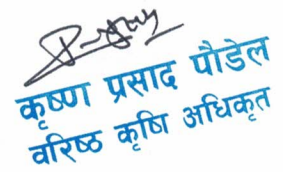 कृष्ण प्रसाद पौडेल
वरिष्ठ कृषि अधिकृत